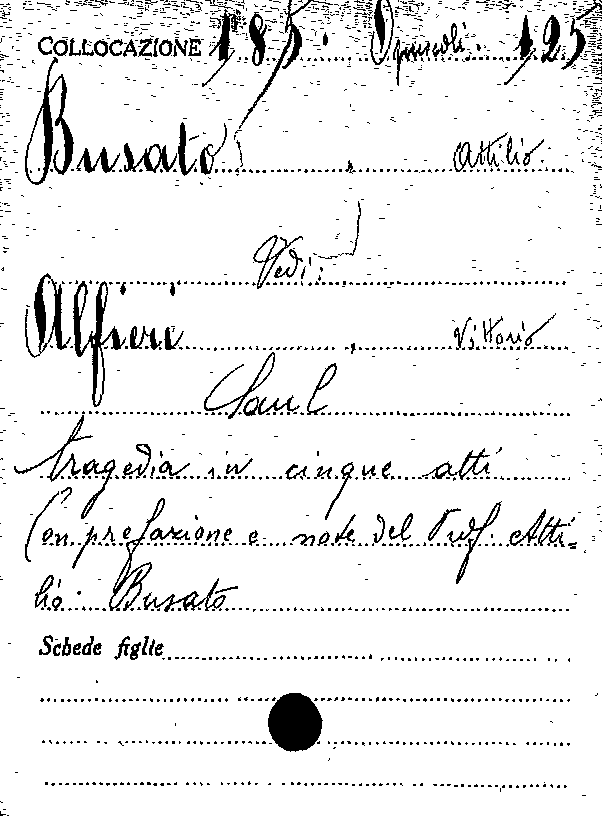 COLLOCAZIONE 185. Opuscoli. 125
Busato, Attilio.
Vedi:
Alfieri, Vittorio
Saul
tragedia in cinque atti
Con prefazione e note del Prof. Atti=
lio. Busato
Schede figlie